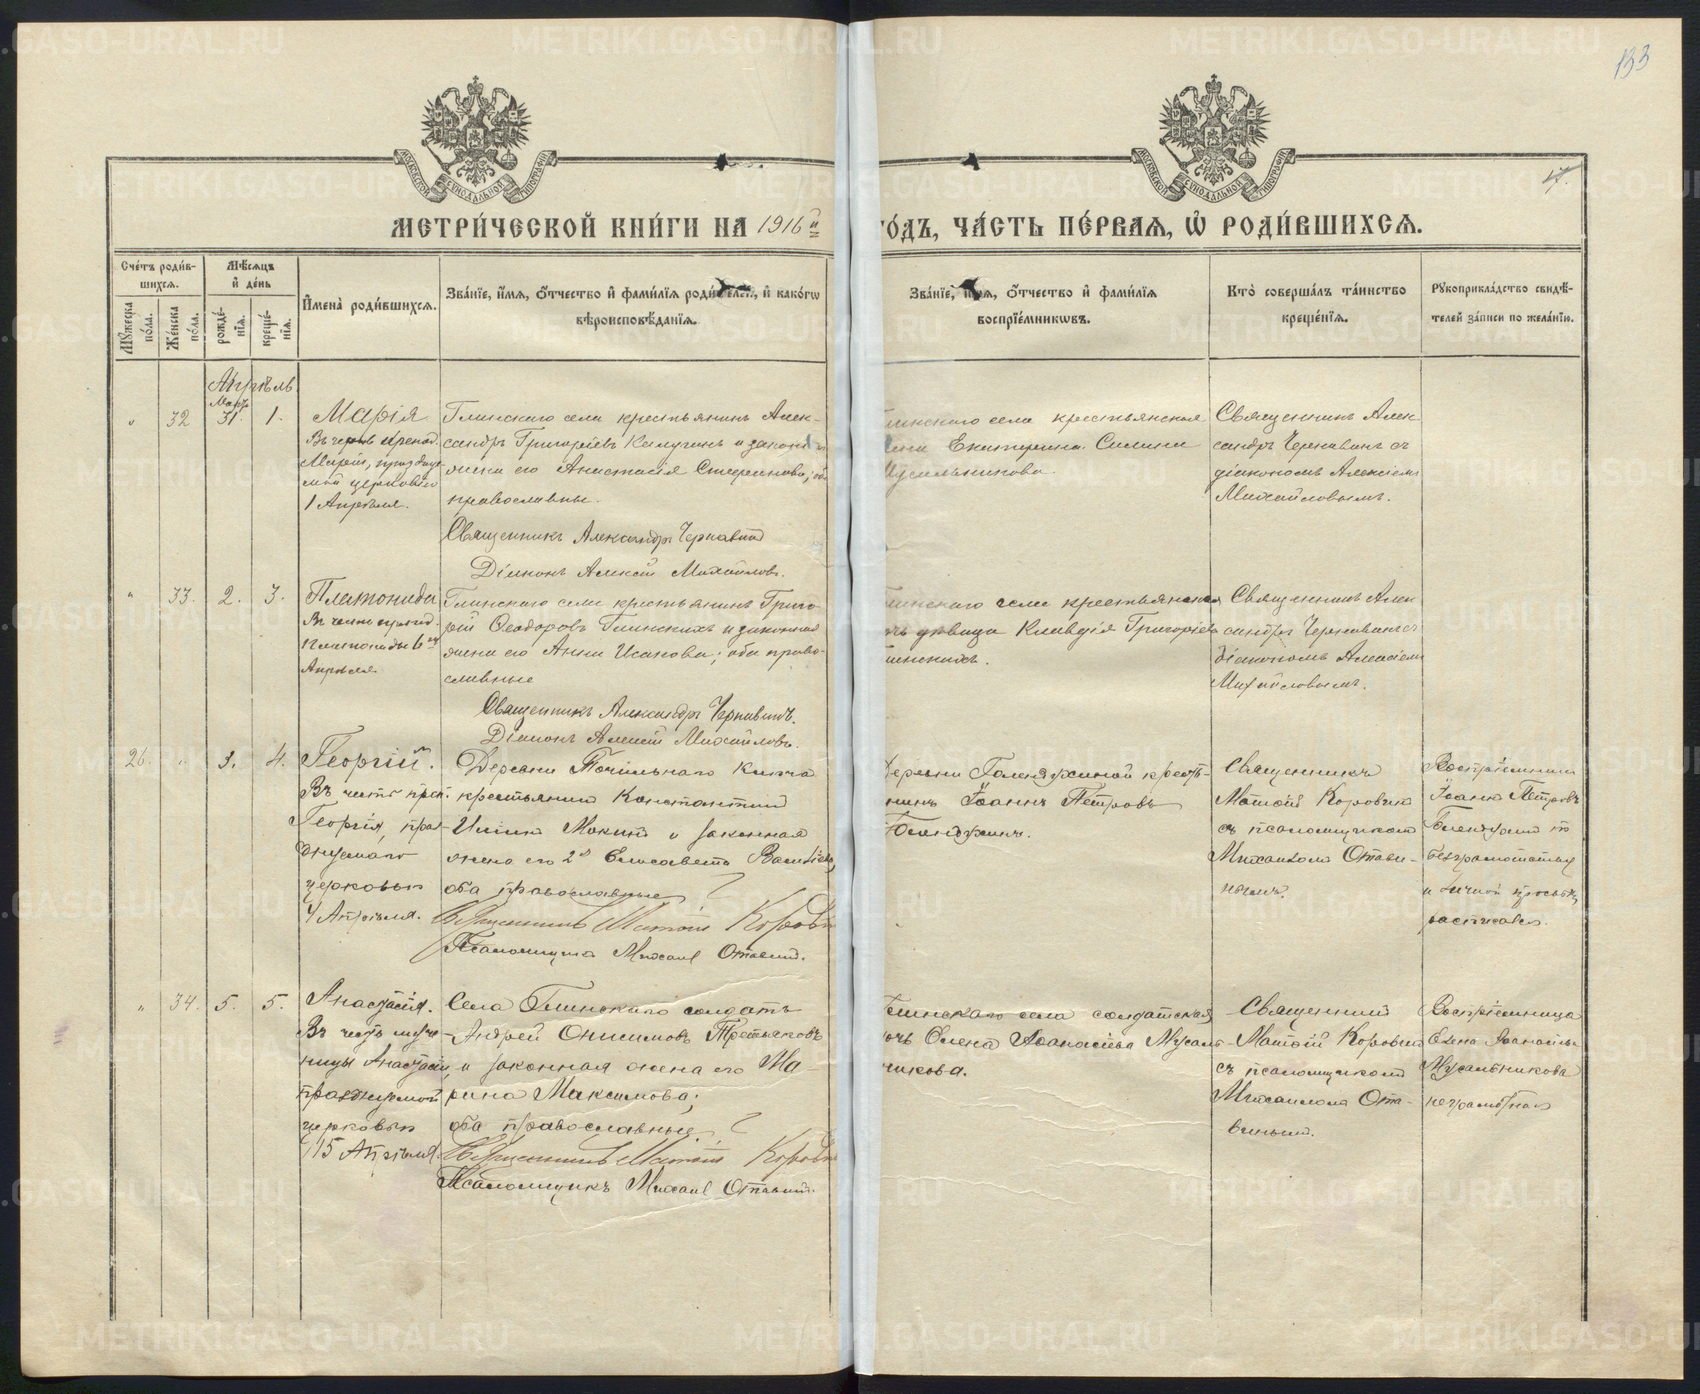 133
17.
МОСКОВСКОЙ СѴНОДАЛЬНОЙ ТИПОГРАФІИ
МОСКОВСКОЙ СѴНОДАЛЬНОЙ ТИПОГРАФІИ
МЕТРИ́ЧЕСКОЙ КНИ́ГИ НА 1916й
ГО́ДЪ, ЧА́СТЬ ПЕ́РВАЯ, Ѡ҆ РОДИ́ВШИХСЯ.
Сче́тъ роди́в-
шихся.
Мѣ́сяцъ
и҆ де́нь
Му́жеска по́ла.
Же́нска по́ла.
рожде́-
нїя.
креще́-
нїя.
И҆мена̀ роди́вшихся.
Зва́нїе, и҆́мя, ѻ҆́тчество и҆ фами́лїя роди́телей, и҆ како́гѡ
вѣроисповѣ́данїя.
Зва́нїе, и҆́мя, ѻ҆́тчество и҆ фами́лїя
воспрїе́мникѡвъ.
Кто̀ соверша́лъ та́инство
креще́нїя.
Рꙋкоприкла́дство свидѣ́-
телей за́писи по жела́нїю.
Апрѣль
Мартъ
" 32 31. 1.
Марія
Въ честь препод.
Маріи, празднуе-
мой церковію
1 Апрѣля.
Глинскаго села крестьянинъ Алек-
сандръ Григоріевъ Калугинъ и законная
жена его Анастасія Стефанова; оба
православные.
Священникъ Александръ Чернавинъ
Діаконъ Алексій Михайловъ.
линскаго села крестьянская
Екатерина Силина
Мусальникова.
Священникъ Алек-
сандръ Чернавинъ съ
діакономъ Алексіемъ
Михайловымъ.
" 33. 2. 3.
Платонида
Въ честь препод.
Платониды 6го
Апрѣля.
Глинскаго села крестьянинъ Григо-
рій Ѳеодоровъ Глинскихъ и законная
жена его Анна Исакова; оба право-
славные
Священникъ Александръ Чернавинъ.
Діаконъ Алексій Михайловъ.
линскаго села крестьянская
чь дѣвица Клавдія Григоріева
линскихъ.
Священникъ Алек-
сандръ Чернавинъ съ
діакономъ Алексіемъ
Михайловымъ.
26. " 3. 4.
Георгій.
Въ честь преп.
Георгія, праз-
днуемаго
церковью
4 Апрѣля.
Деревни Точильнаго Ключа
крестьянинъ Константинъ
Мокинъ и законная
жена его 2я Елисавета Васильева,
оба православные
Священникъ Матѳій Коровинъ
Псаломщикъ Михаилъ Отавинъ.
Деревни Голендухиной крестья-
нинъ Іоаннъ Петровъ
Голендухинъ.
Священникъ
Матѳій Коровинъ
съ псаломщикомъ
Михаиломъ Отави-
нымъ.
Воспріемникъ
Іоаннъ Петровъ
Голендухинъ по
безграмотству
и личной просьбѣ
расписался
" 34. 5. 5.
Анастасія.
Въ честь муче-
ницы Анастасіи,
празднуемой
церковью
15 Апрѣля.
Села Глинскаго солдатъ
Андрей Онисимовъ Третьяковъ
и законная жена его Ма-
рина Максимова;
оба православные.
Священникъ Матѳій Коровинъ
Псаломщикъ Михаилъ Отавинъ.
Глинскаго села солдатская
дочь Елена Аѳанасіева Мусаль-
никова.
Священникъ
Матѳій Коровинъ
съ псаломщикомъ
Михаиломъ Ота-
винымъ.
Воспріемница
Елена Аѳанасіева
Мусальникова
неграмотная
METRIKI.GASO-URAL.RU